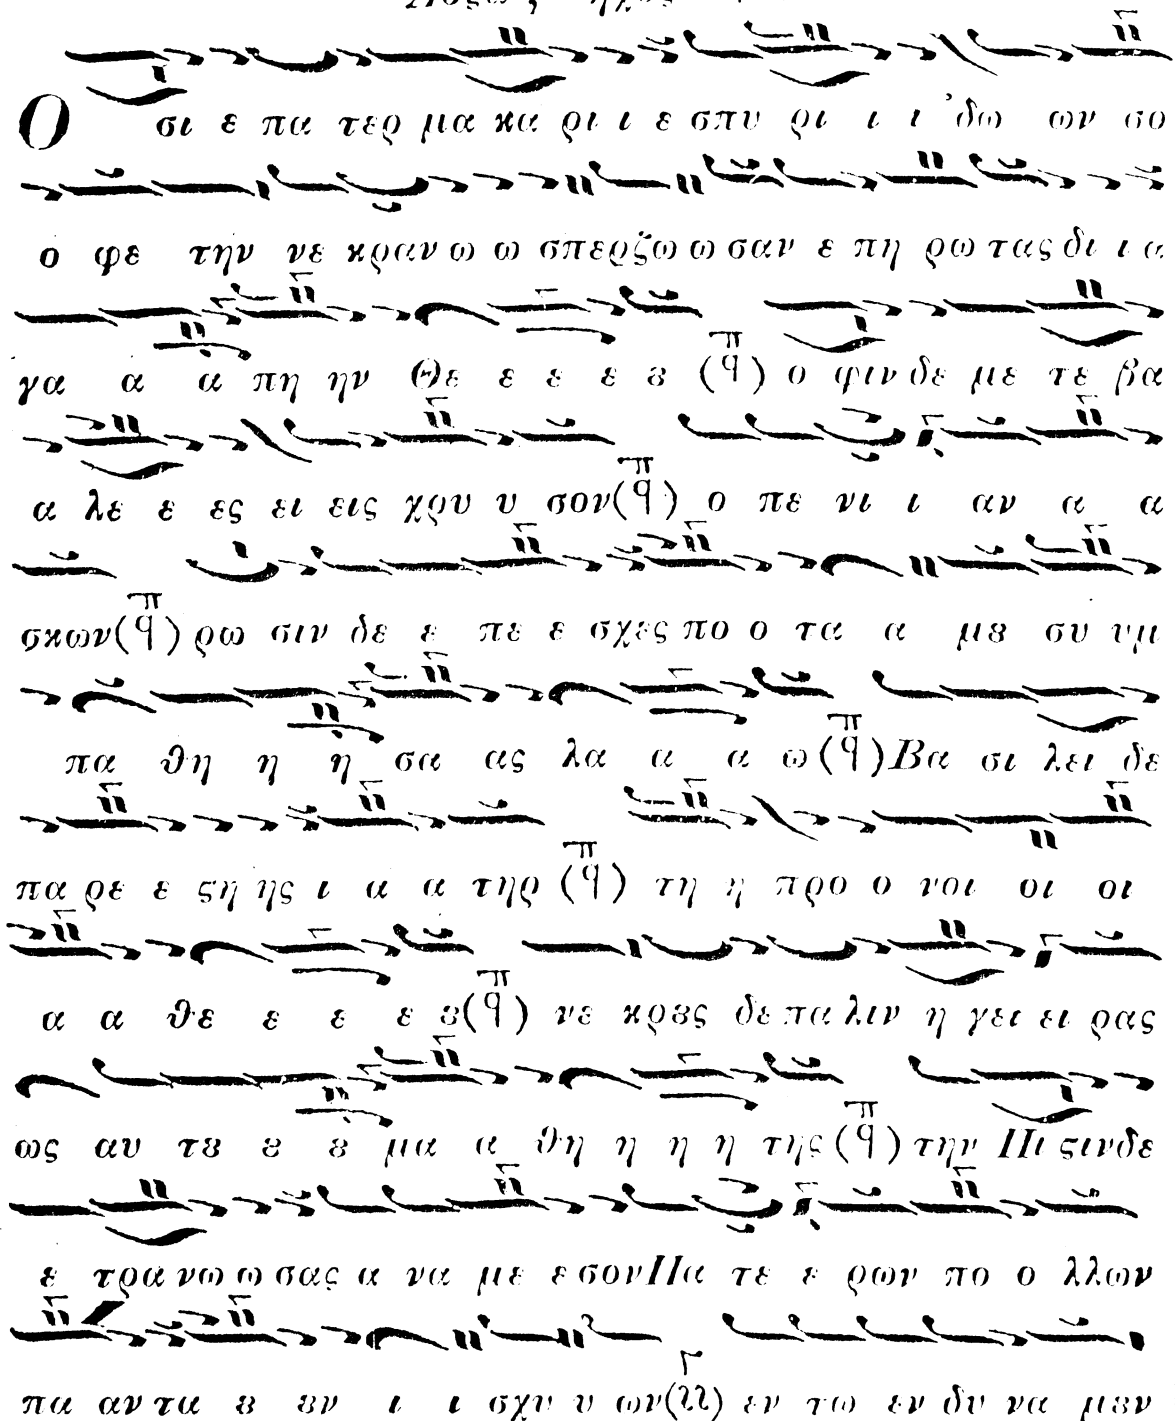 Ο σι ε πα τερ μα κα ρι ι ε σπυ ρι ι ι ’δω ων σο
ο φε την νε κραν ω ω σπερ ζω ω σαν ε πη ρω τας δι ι α
γα α α πη ην Θε ε ε ε ȣ (π q) ο φιν δε με τε βα
α λε ε ες ει εις χρυ υ σον (π q) ο πε νι ι αν α α
σκων (π q) ρω σιν δε ε πε ε σχες πο ο τα α μȣ συ υμ
πα θη η η σα ας λα α α ω (π q) Βα σι λει δε
πα ρε ε ϛη ης ι α α τηρ (π q) τη η προ ο νοι οι οι
α α θε ε ε ε ȣ (π q) νε κρȣς δε πα λιν η γει ει ρας
ως αυ τȣ ȣ ȣ μα α θη η η η της (π q) την Πι ϛιν δε
ε τρα νω ω σας α να με ε σον Πα τε ε ρων πο ο λλων
πα αν τα ȣ ȣν ι ι σχυ υ ων εν τω εν δυ να μȣν